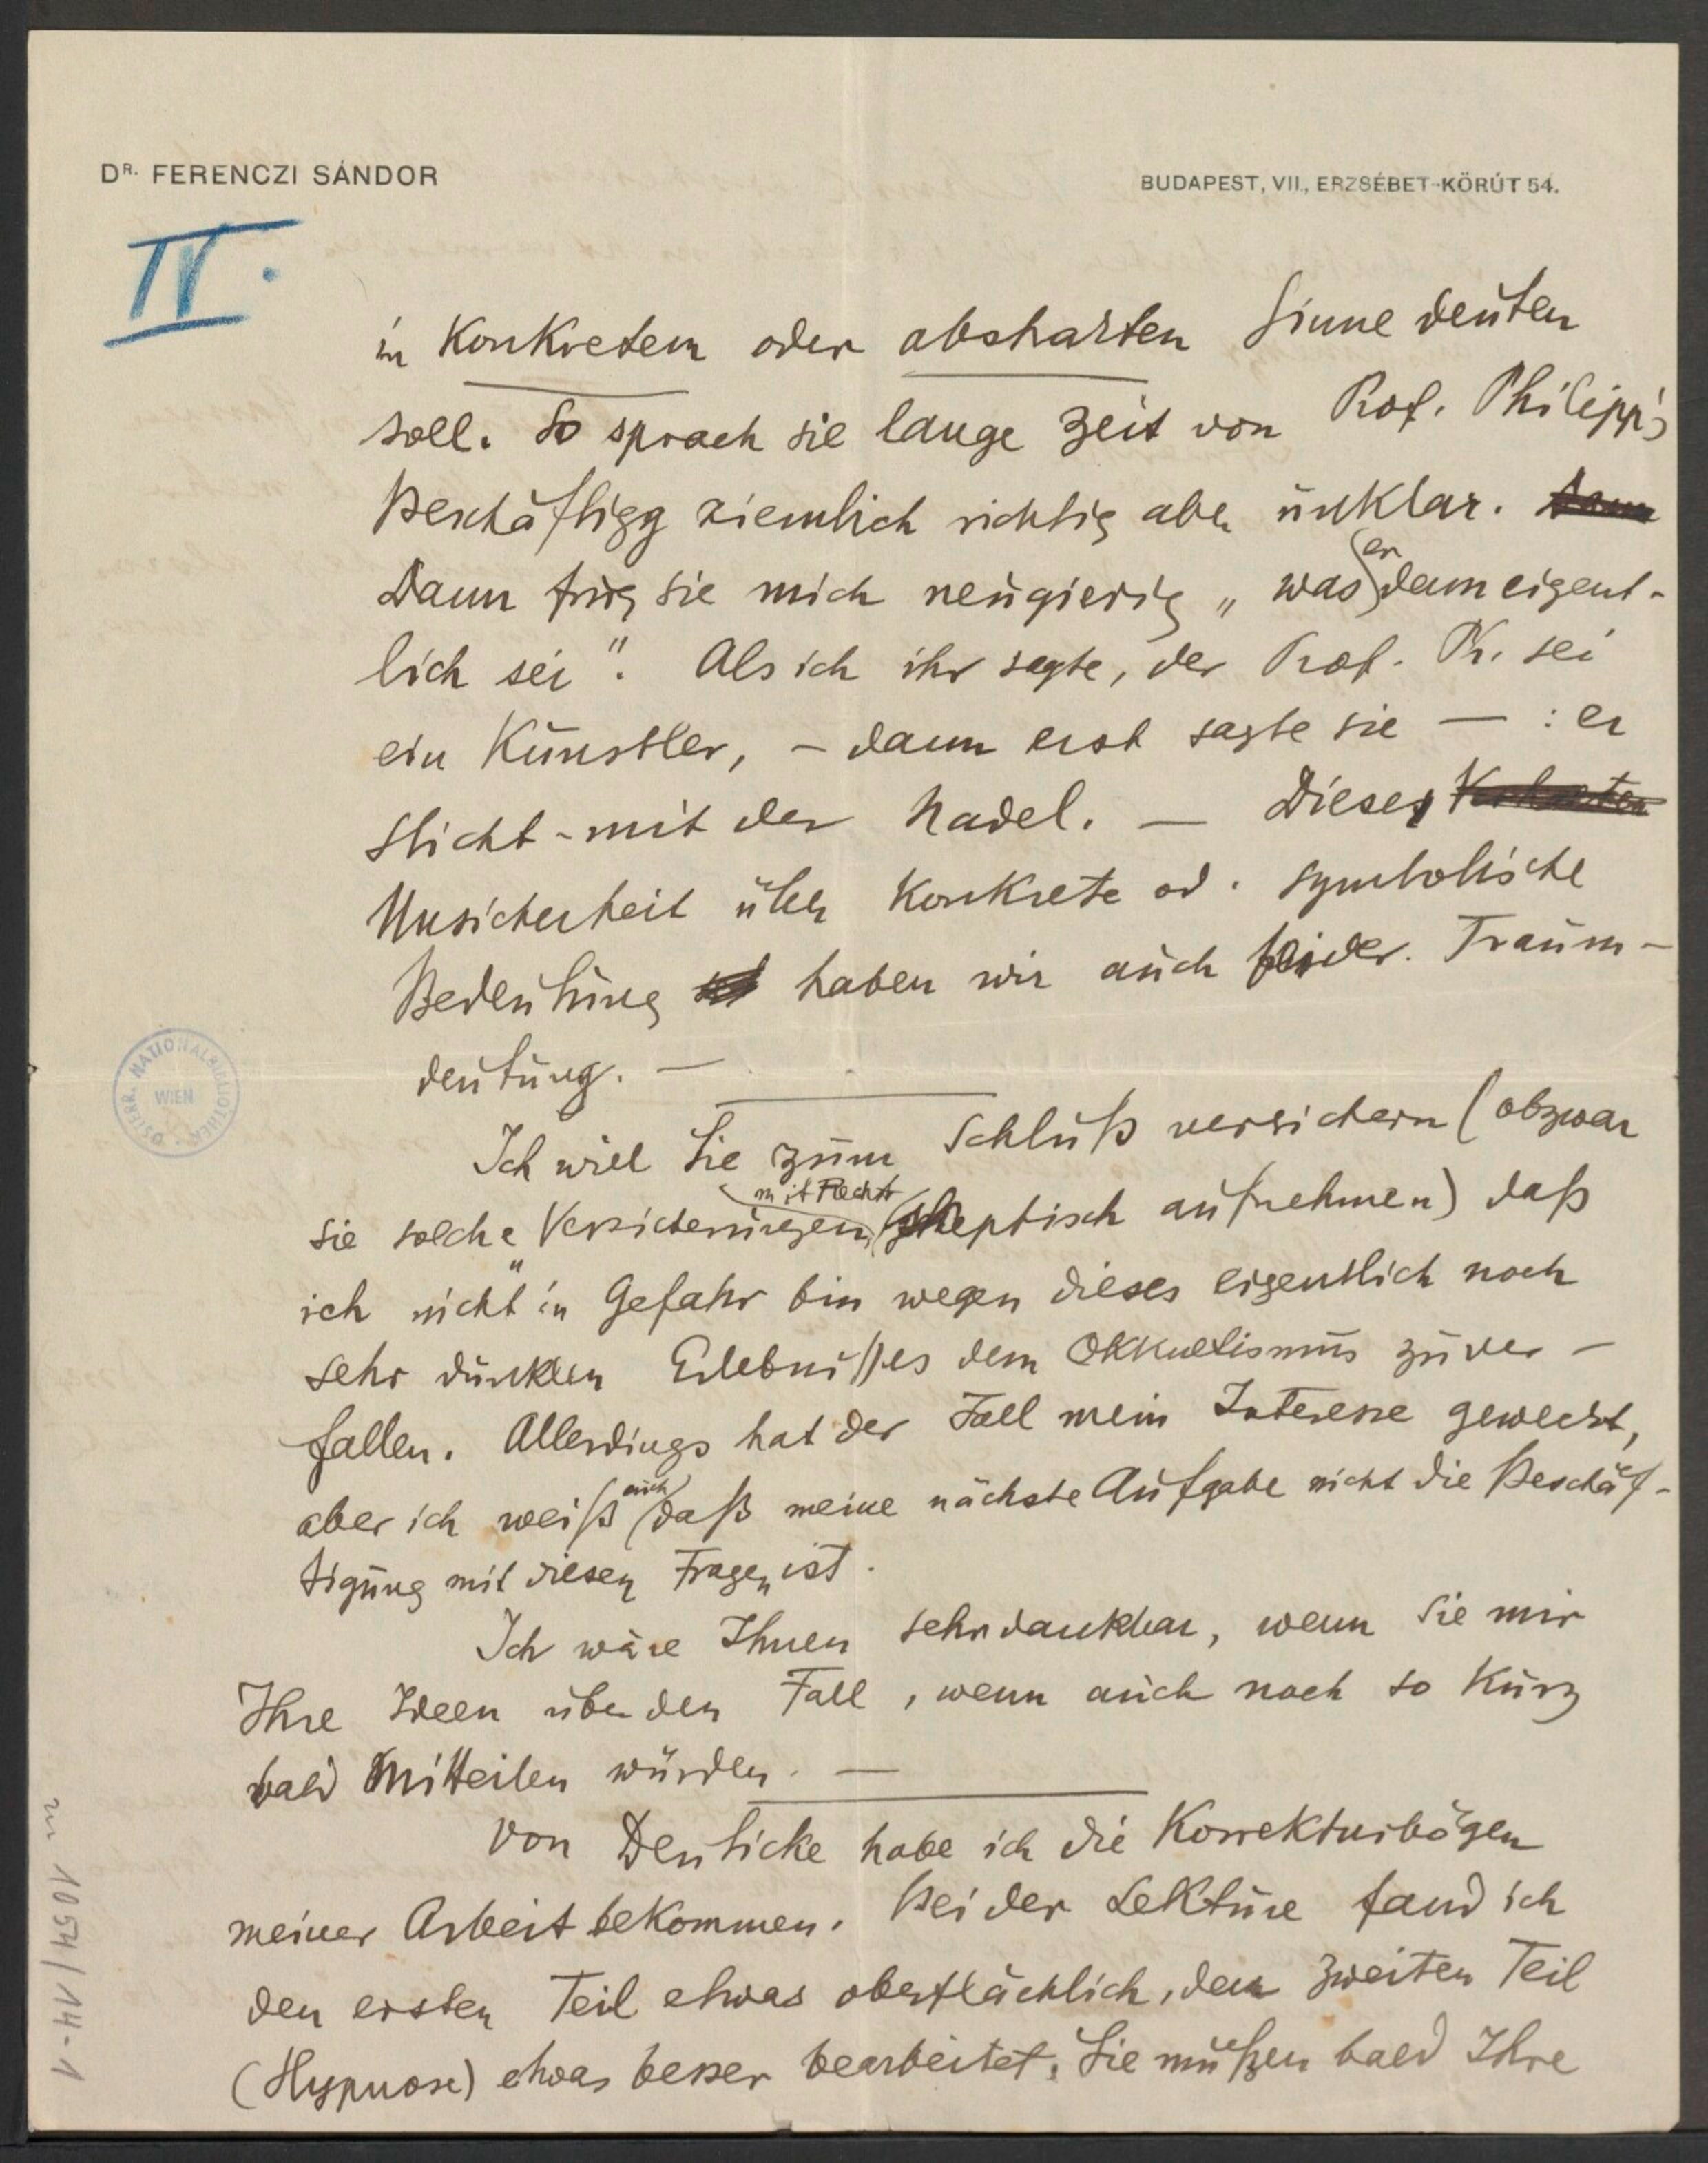 DR. FERENCZI SÁNDOR
BUDAPEST, VII., ERZSÉBET-KÖRÚT 54.
IV.
in Konkretem oder abstrakten Sinne deuten
soll. So sprach sie lange Zeit von Prof. Philipp's
Beschäftigg ziemlich richtig aber unklar. Dann
Dann frug sie mich neugierig „was er denn eigent-
lich sei". Als ich ihr sagte, der Prof. Ph. sei
ein Künstler, – dann erst sagte sie — : er
sticht – mit der Nadel. — Diese
Unsicherheit über Konkrete od. symbolische
Bedeutung haben wir auch bei der Traum-
deutung. —
Ich will Sie zum Schluß versichern (obzwar
sie solche Versicherungen mit Recht skeptisch aufnehmen) daß
ich nicht in Gefahr bin wegen dieses eigentlich noch
sehr dunklen Erlebnißes dem Okkultismus zu ver-
fallen. Allerdings hat der Fall mein Interesse geweckt,
aber ich weiß auch daß meine nächste Aufgabe nicht die Beschäf-
tigung mit diesen Fragen ist.
Ich wäre Ihnen sehr dankbar, wenn Sie mir
Ihre Ideen über den Fall, wenn auch noch so Kurz
bald Mitteilen würden. —
Von Deuticke habe ich die Korrekturbögen
meiner Arbeit bekommen. Bei der Lektüre fand ich
den ersten Teil etwas oberflächlich, den zweiten Teil
(Hypnose) etwas besser bearbeitet. Sie müßen bald Ihre
ÖSTERR. NATIONALBIBLIOTHEK WIEN
zu 1054/14-1